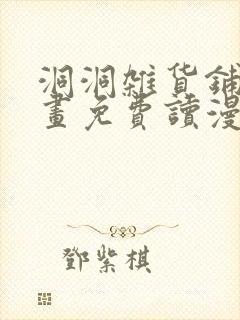 洞洞雑货鋪
畫免費讀漫
鄧紫棋